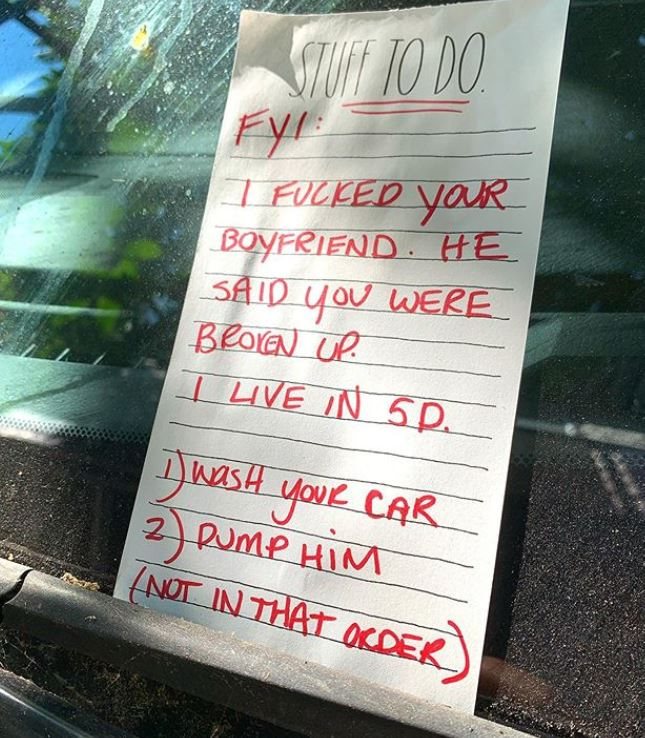 STUFF TO DO.
FYI:
I FUCKED YOUR
BOYFRIEND. HE
SAID YOU WERE
BROKEN UP.
I LIVE IN 5D.
1) WASH YOUR CAR
2) DUMP HIM
(NOT IN THAT ORDER)